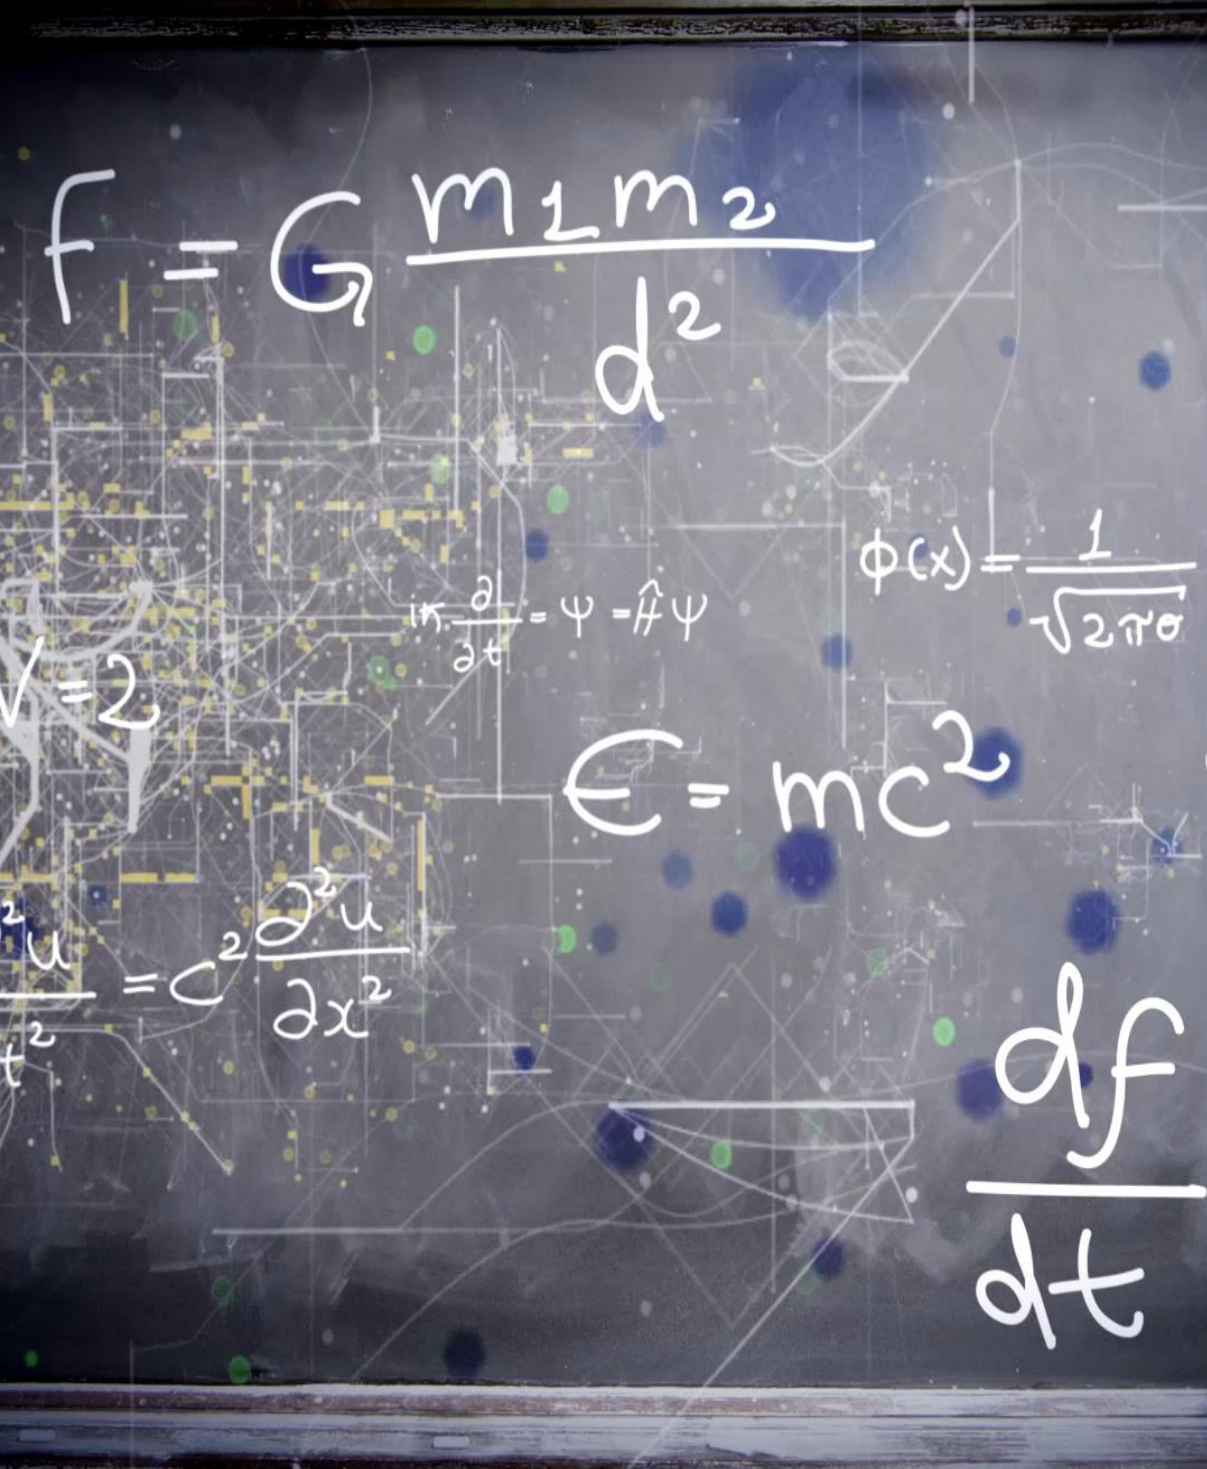 F = G m1m2 / d²
φ(x) = 1 / √2πσ
iℏ ∂/∂t = Ψ = ĤΨ
V = 2
E = mc²
²u / t² = c² ∂²u / ∂x²
df / dt